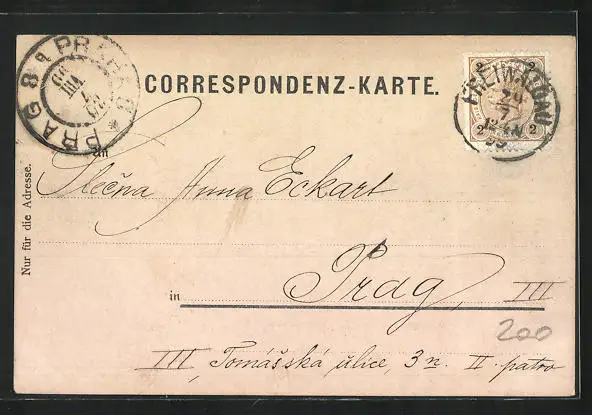 CORRESPONDENZ-KARTE.
PRAG 8
2 2
2 2
An
Slečna Anna Eckart
in Prag, III
200
III, Tomášská ulice, 3 n. II. patro
Nur für die Adresse.